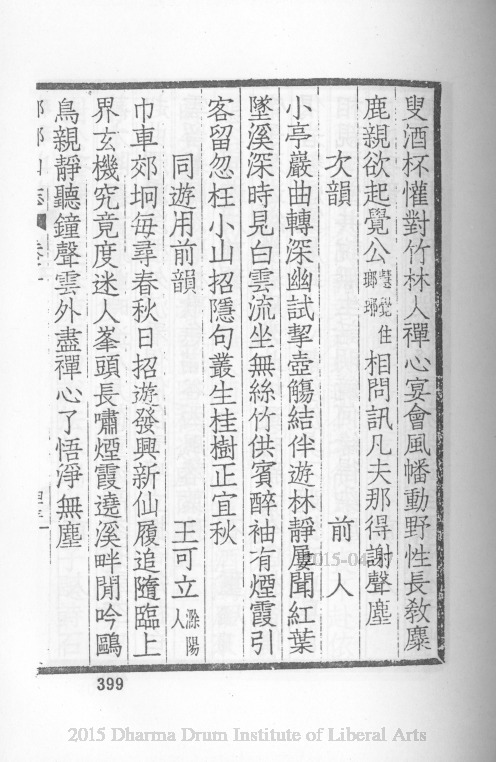 叟酒杯慵對竹林人禪心宴會風幡動野性長教麋
鹿親欲起覺公慧覺住瑯琊相問訊凡夫那得謝聲塵
次韻 前人
小亭巖曲轉深幽試挈壺觴結伴遊林靜屢聞紅葉
墜溪深時見白雲流坐無絲竹供賓醉袖有煙霞引
客留忽枉小山招隱句叢生桂樹正宜秋
同遊用前韻 王可立滁陽人
巾車郊坰每尋春秋日招遊發興新仙履追隨臨上
界玄機究竟度迷人峯頭長嘯煙霞遶溪畔閒吟鷗
鳥親靜聽鐘聲雲外盡禪心了悟淨無塵
399
2015-04-
2015 Dharma Drum Institute of Liberal Arts